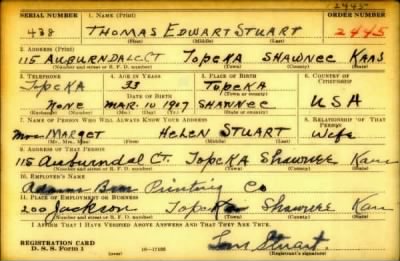 2445
SERIAL NUMBER 1. NAME (Print) ORDER NUMBER
438 THOMAS EDWART STUART 2445
(First) (Middle) (Last)
2. ADDRESS (Print)
115 AUBURNDALE CT TOPEKA SHAWNEE KANS
(Number and street or R. F. D. number) (Town) (County) (State)
3. TELEPHONE 4. AGE IN YEARS 5. PLACE OF BIRTH 6. COUNTRY OF CITIZENSHIP
TOPEKA 33 TOPEKA
DATE OF BIRTH (Town or county)
NONE MAR. 10 1907 SHAWNEE USA
(Exchange) (Number) (Mo.) (Day) (Yr.) (State or country)
7. NAME OF PERSON WHO WILL ALWAYS KNOW YOUR ADDRESS 8. RELATIONSHIP OF THAT PERSON
Mrs MARGET HELEN STUART Wife
(Mr., Mrs., Miss) (First) (Middle) (Last)
9. ADDRESS OF THAT PERSON
115 Auburndal CT. TOPEKA Shawnee Kans
(Number and street or R. F. D. number) (Town) (County) (State)
10. EMPLOYER'S NAME
Adams Bros Printing Co
11. PLACE OF EMPLOYMENT OR BUSINESS
200 Jackson Topeka Shawnee Kan
(Number and street or R. F. D. number) (Town) (County) (State)
I AFFIRM THAT I HAVE VERIFIED ABOVE ANSWERS AND THAT THEY ARE TRUE.
REGISTRATION CARD
D. S. S. Form 1 (over) 16—17105 Stuart.
(Registrant's signature)